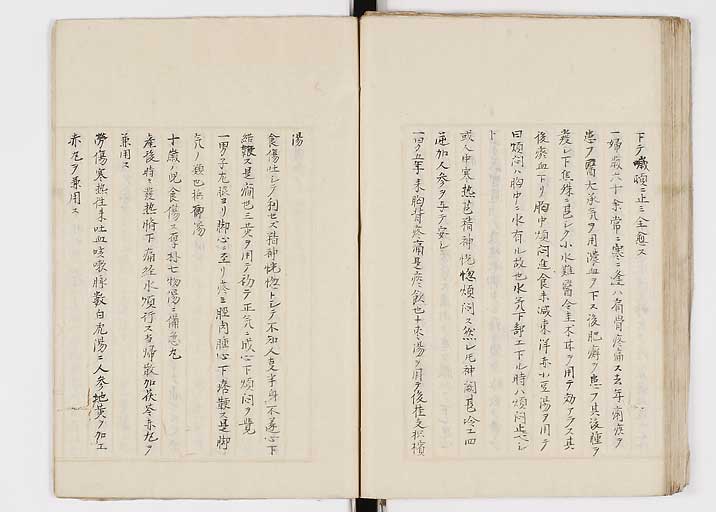 下テ嘔煩ニ止ミ全愈ス
一婦歳六十余常ニ寒ニ逢ハ肩骨疼痛ス去年痢疾ヲ
患フ醫大承気ヲ用濃血ヲ下ス後肥癬ヲ患フ其後種々
發シ下焦殊ニ甚レク小水難醫令圭木耳ヲ用テ効アラス其
後瘀血下リ胸中煩悶進食末減東洋赤小豆湯ヲ用テ
曰煩悶ハ胸中ニ水有ル故也水気下部エ下ル時ハ煩悶止ヘシ
ト
或人中寒熱甚精神恍惚煩悶ス然レ圧神闕甚冷エ四
逆加人参ヲ与テ安シ
一曰ク五年来胸背疼痛是痰飲也十枣湯ヲ用テ後桂支枳實
湯
食傷吐シテ利セス精神恍惚トシテ不知人支半身不遂心下
結鞕ス是痛也三黄ヲ用テ効テ正気ニ成心下煩悶ヲ覺
一男子尤張ヨリ脚心ニ至リ疼ミ脛肉腫心下痞鞕ス是脚
気ノ類也檳榔湯
十歳ノ児食傷ス厚朴七物湯ニ備急丸
産後時々發熱臍下痛経水順行ス当帰散加茯苓赤丸ヲ
兼用ス
労傷寒熱往来吐血咳嗽脉數白虎湯ニ人参地黄ヲ加エ
赤丸ヲ兼用ス